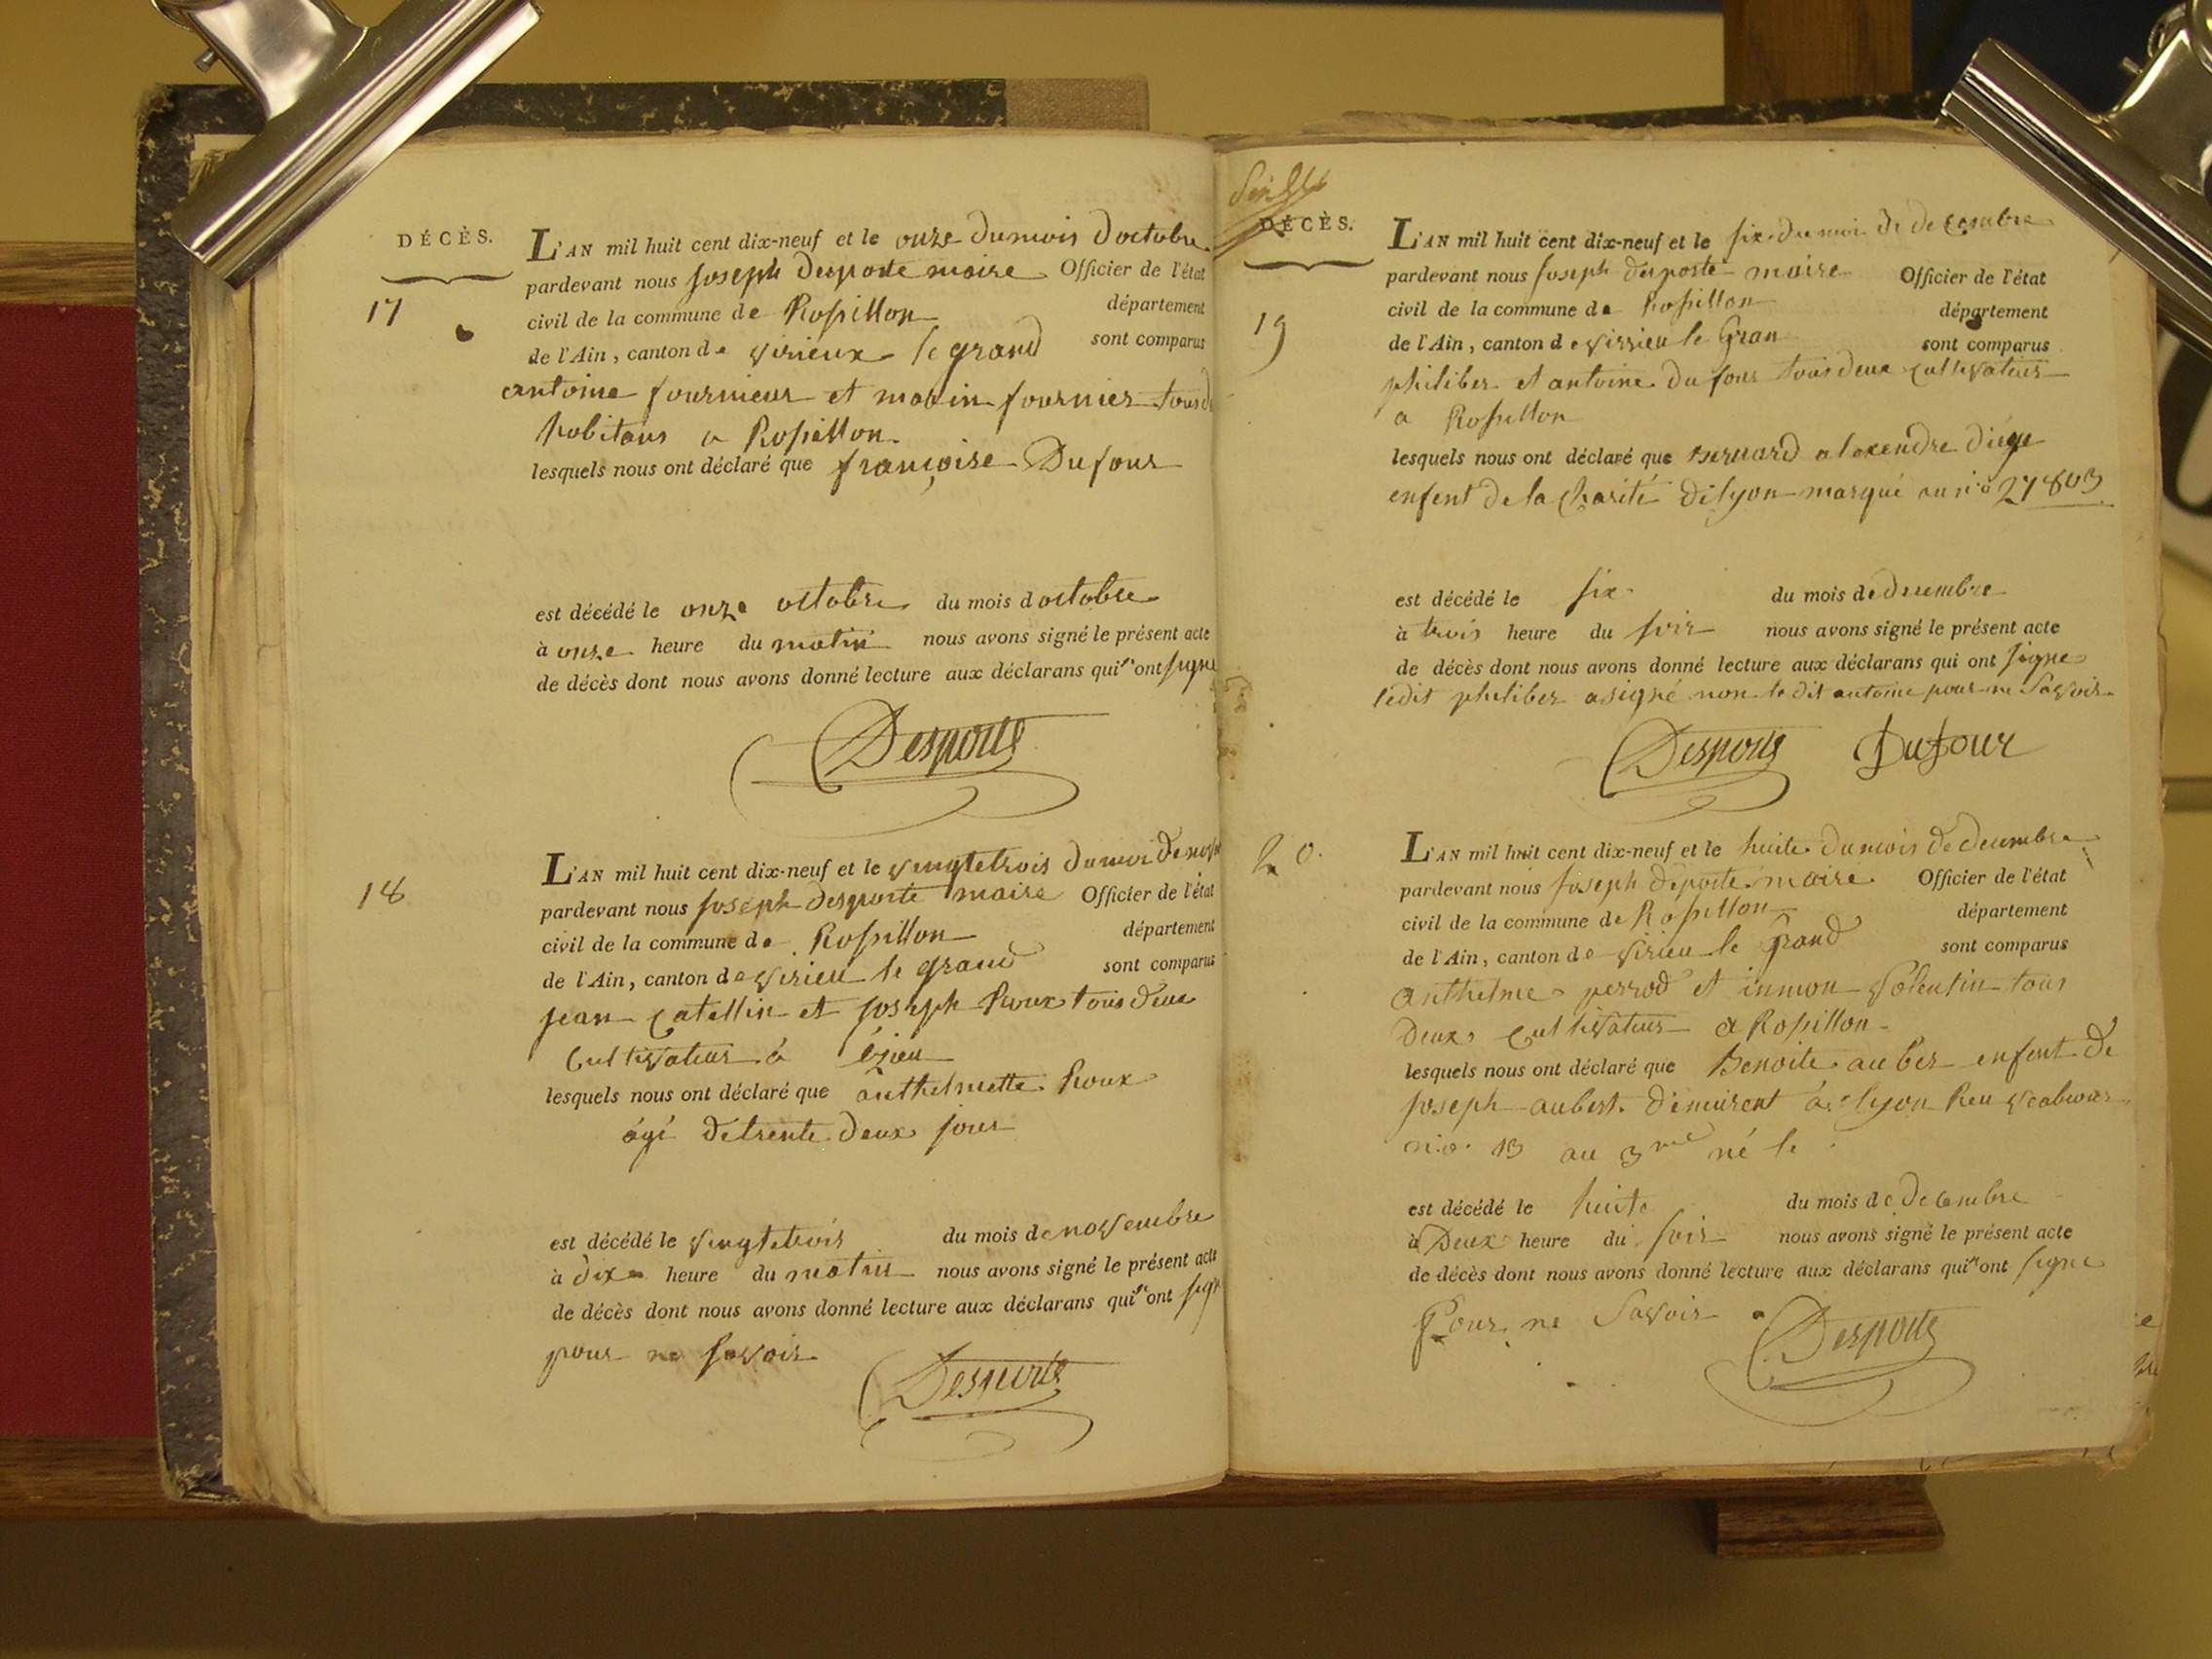 DÉCÈS.
17
L'AN mil huit cent dix-neuf et le onze du mois doctobre
pardevant nous joseph desporte maire Officier de l'état
civil de la commune de Rossillon département
de l'Ain, canton de virieux le grand sont comparus
antoine fournieur et fournier tous
habitans a Rossillon
lesquels nous ont déclaré que françoise Dufour
est décédé le onze octobre du mois doctobre
à onze heure du matin nous avons signé le présent acte
de décès dont nous avons donné lecture aux déclarans qui n'ont signe
Desporte
18
L'AN mil huit cent dix-neuf et le vingtetrois du moi de
pardevant nous joseph desporte maire Officier de l'état
civil de la commune de Rossillon département
de l'Ain, canton de virieu le grand sont comparus
jean catellin et joseph Roux tous deux
cultivateur à
lesquels nous ont déclaré que anthelmette Roux
ágé de trente deux jour
est décédé le vingtetrois du mois de novembre
à dix heure du matin nous avons signé le présent acte
de décès dont nous avons donné lecture aux déclarans qui n'ont
pour ne savoir
Desporte
DÉCÈS.
19
L'AN mil huit cent dix-neuf et le six du moi de decembre
pardevant nous joseph desporte maire Officier de l'état
civil de la commune de Rossillon département
de l'Ain, canton de virrieu le Gran sont comparus
philiber et antoine dufour tous deux cultivateur
a Rossillon
lesquels nous ont déclaré que bernard alexendre diége
enfent de la charité de lyon marqué au n.o 27803
est décédé le six du mois de decembre
à trois heure du soir nous avons signé le présent acte
de décès dont nous avons donné lecture aux déclarans qui ont signe
ledit philiber a signé non le dit antoine pour ne savoir
Desporte Dufour
20.
L'AN mil huit cent dix-neuf et le huite du mois de decembre
pardevant nous joseph deporte maire Officier de l'état
civil de la commune de Rossillon département
de l'Ain, canton de virieu le Grand sont comparus
anthelme perrod et tous
deux cultivateur a Rossillon
lesquels nous ont déclaré que Benoite auber enfent de
joseph aubert demeurent à lyon
n.o. 13 au 3me né le
est décédé le huite du mois de decembre
à Deux heure du soir nous avons signé le présent acte
de décès dont nous avons donné lecture aux déclarans qui n'ont signe
Pour ne savoir
Desporte